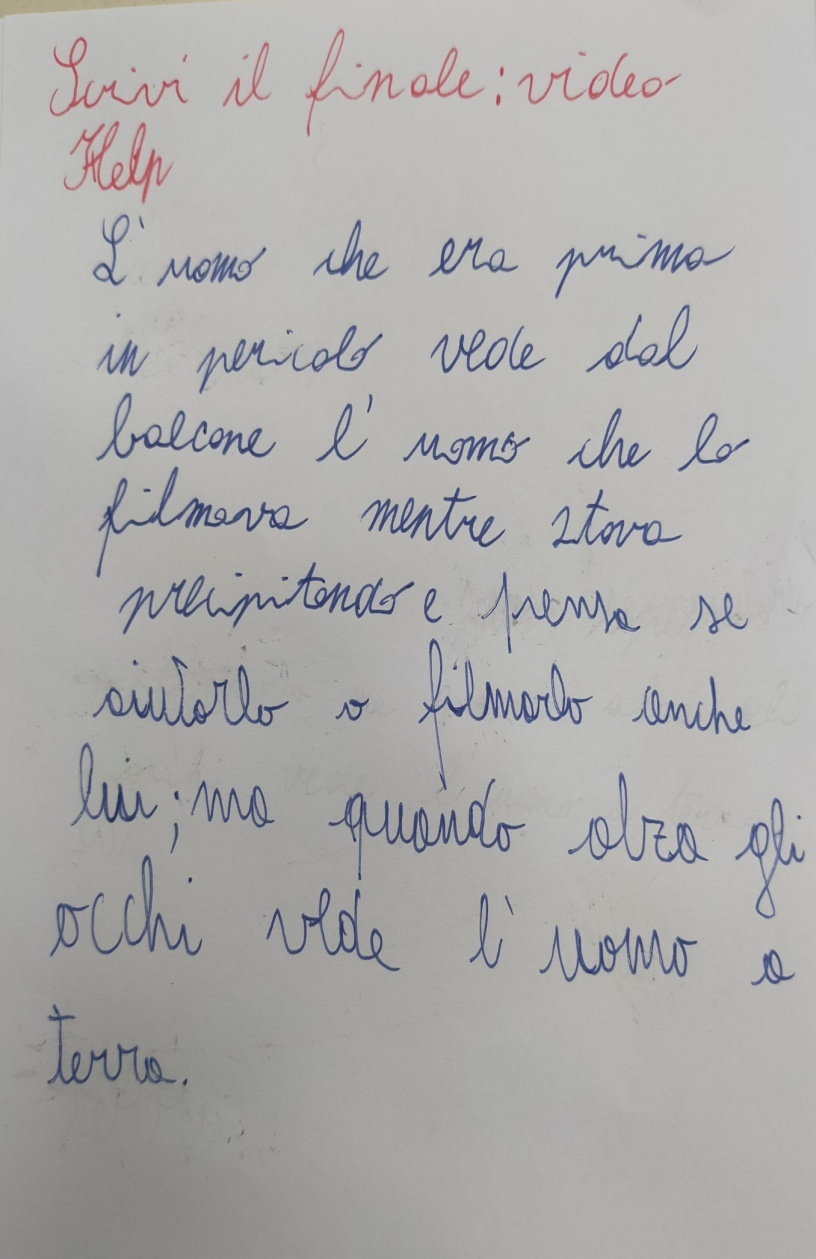 Scrivi il finale: video
Help
L'uomo che era prima
in pericolo vede dal
balcone l'uomo che lo
filmava mentre stava
precipitando e pensa se
aiutarlo o filmarlo anche
lui; ma quando alza gli
occhi vede l'uomo a
terra.